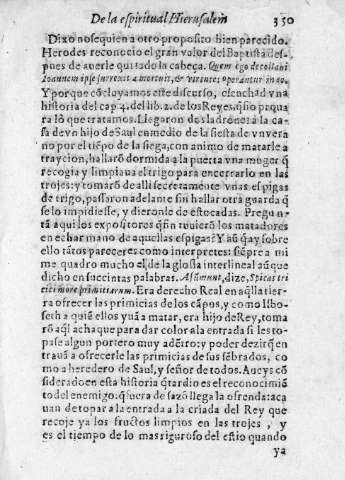 De la espiritual Hierusalem 350
Dixo nosequien a otro proposito bien parecido.
Herodes reconocio el gran valor del Baptista des-
pues de averle quitado la cabeça. Quem ego decollaui
Ioannem ipse surrexit a mortuis, & virtutes operantur in eo.
Y porque cõcluyamos este discurso, escuchad vna
historia del cap 4. del lib. 2. de los Reyes, q̃ sio prqua
ra lo que tratamos. Llegaron dos ladrones a la ca-
sa de vn hijo de Saul en medio de la siesta de vn vera
no por el tiẽpo de la siega, con animo de matarle a
traycion, hallarõ dormida a la puerta vna muger q̃
recogia y limpiaua el trigo para encerrarlo en las
trojes: y tomarõ de alli secretamente vnas espigas
de trigo, passaron adelante sin hallar otra guarda q̃
se lo impidiesse, y dieronle de estocadas. Pregunn-
tã aqui los expositores q̃ fin tuuierõ los matadores
en echar mano de aquellas espigas? Y aũ q̃ ay sobre
ello tãtos pareceres como interpretes: siẽpre a mi
me quadro mucho el de la glosa interlineal aũ que
dicho en sucintas palabras. Assumunt, dize, spicas tri
tici more primitiarum. Era derecho Real en aq̃lla tier-
ra ofrecer las primicias de los cãpos, y como Isbo-
seth a quiẽ ellos yuã a matar, era hijo de Rey, toma
rõ aq̃l achaque para dar color a la entrada si les to-
pase algun portero muy adẽtro: y poder dezir q̃ en
trauã a ofrecerle las primicias de sus sẽbrados, co
mo a heredero de Saul, y señor de todos. Aueys cõ
siderado en esta historia q̃ tardio es el reconocimiẽ
to del enemigo: q̃ fuera de sazõ llega la ofrenda: aca
uan de topar a la entrada a la criada del Rey que
recoje ya los fructos limpios en las trojes, y
es el tiempo de lo mas riguroso del estio quando
ya